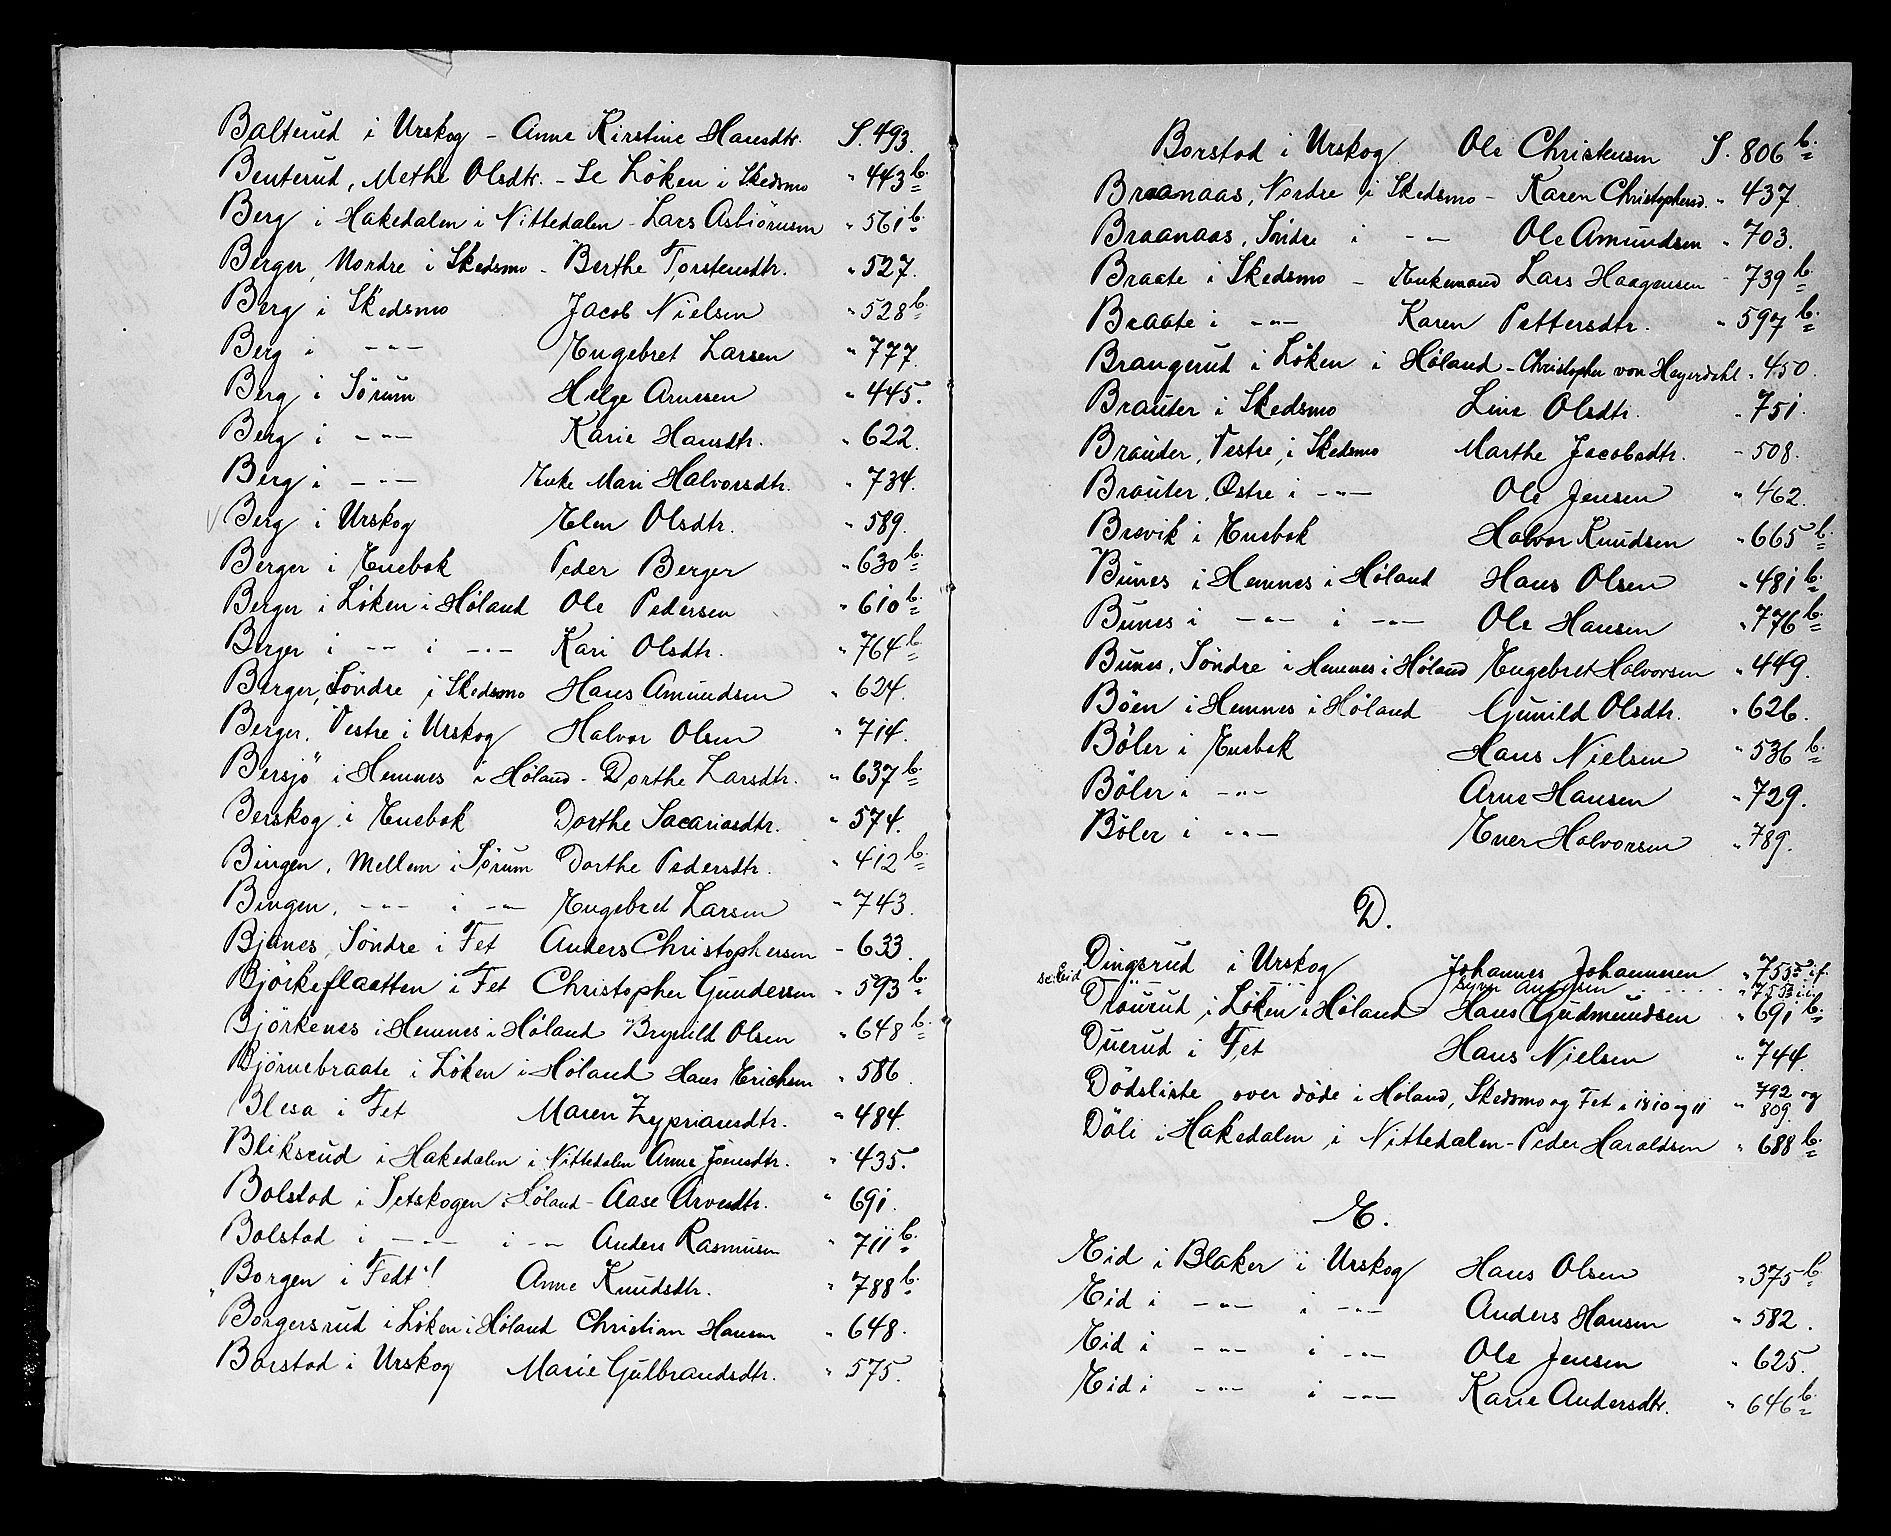 Balterud i Urskog - Anne Kirstine Hansdtr. S. 493.
Benterud, Methe Olsdtr. - Se Löken i Skedsmo " 443 b.
Berg i Hakedalen i Nittedalen - Lars Asbiörnsen " 561 b.
Berger, Nordre i Skedsmo - Berthe Torstensdtr. " 527.
Berg i Skedsmo Jacob Nielsen " 528 b.
Berg i -"- Engebret Larsen " 777.
Berg i Sörum Helge Arnesen " 445.
Berg i -"- Karie Hansdtr. " 622.
Berg i -"- Enke Mari Halvorsdtr. " 734.
Berg i Urskog Elen Olsdtr. " 589.
Berger i Enebak Peder Berger " 630 b.
Berger i Löken i Höland Ole Pedersen " 610 b.
Berger i -"- i -"- Kari Olsdtr. " 764 b.
Berger, Söndre i Skedsmo Hans Amundsen " 624.
Berger, Vestre i Urskog Halvor Olsen " 714.
Bersjö i Hemnes i Höland - Dorthe Larsdtr. " 637 b.
Berskog i Enebak Dorthe Sacariasdtr. " 574.
Bingen, Mellem i Sörum Dorthe Pedersdtr. " 412 b.
Bingen, -"- i -"- Engebret Larsen " 743.
Bjanes, Söndre i Fet Anders Christophersen - 633.
Björkeflaatten i Fet Christopher Gundersen " 593 b.
Björkenes i Hemnes i Höland Brynild Olsen " 648 b.
Björnebraate i Löken i Höland Hans Erichsen " 586.
Blesa i Fet Maren Zypriansdtr. " 484.
Bliksrud i Hakedalen i Nittedalen Anne Joensdtr. " 435.
Bolstad i Setskogen i Höland - Aase Arvesdtr. " 691.
Bolstad i -"- i -"- Anders Rasmusen " 711 b.
Borgen i Fedt! Anne Knudsdtr. " 788 b.
Borgersrud i Löken i Höland Christian Hansen " 648.
Borstad i Urskog Marie Gulbrandsdtr. " 575.
Borstad i Urskog Ole Christensen S. 806 b.
Braanaas, Nordre i Skedsmo - Karen Christophersd. " 437.
Braanaas, Söndre i -"- Ole Amundsen " 703.
Braate i Skedsmo - Enkemand Lars Haagensen " 739 b.
Braate i -"- Karen Pettersdtr. " 597 b.
Brangerud i Löken i Höland - Christopher von Heyerdahl " 450.
Brauter i Skedsmo Line Olsdtr. " 751.
Brauter, Vestre, i Skedsmo Marthe Jacobsdtr. - 508.
Brauter, Östre i -"- Ole Jensen " 462.
Brevik i Enebak Halvor Knudsen " 665 b.
Bunes i Hemnes i Höland Hans Olsen " 481 b.
Bunes i -"- i -"- Ole Hansen " 776 b.
Bunes, Söndre i Hemnes i Höland Engebret Halvorsen " 449.
Böen i Hemnes i Höland Gunild Olsdtr. " 626.
Böler i Enebak Hans Nielsen " 536 b.
Böler i -"- Arne Hansen " 729.
Böler i -"- Ener Halvorsen " 789.
D.
Dingsrud i Urskog Johannes Johannesen " 755
Drourud i Löken i Höland Hans Gudmundsen " 691 b.
Duerud i Fet Hans Nielsen " 744.
Dödsliste over döde i Höland, Skedsmo og Fet i 1810 og 11 " 792 og 809.
Döli i Hakedalen i Nittedalen - Peder Haraldsen " 688 b.
E.
Eid i Blaker i Urskog Hans Olsen " 375 b.
Eid i -"- i -"- Anders Hansen " 582.
Eid i -"- i -"- Ole Jensen " 625.
Eid i -"- i -"- Karie Andersdtr. " 646 b.